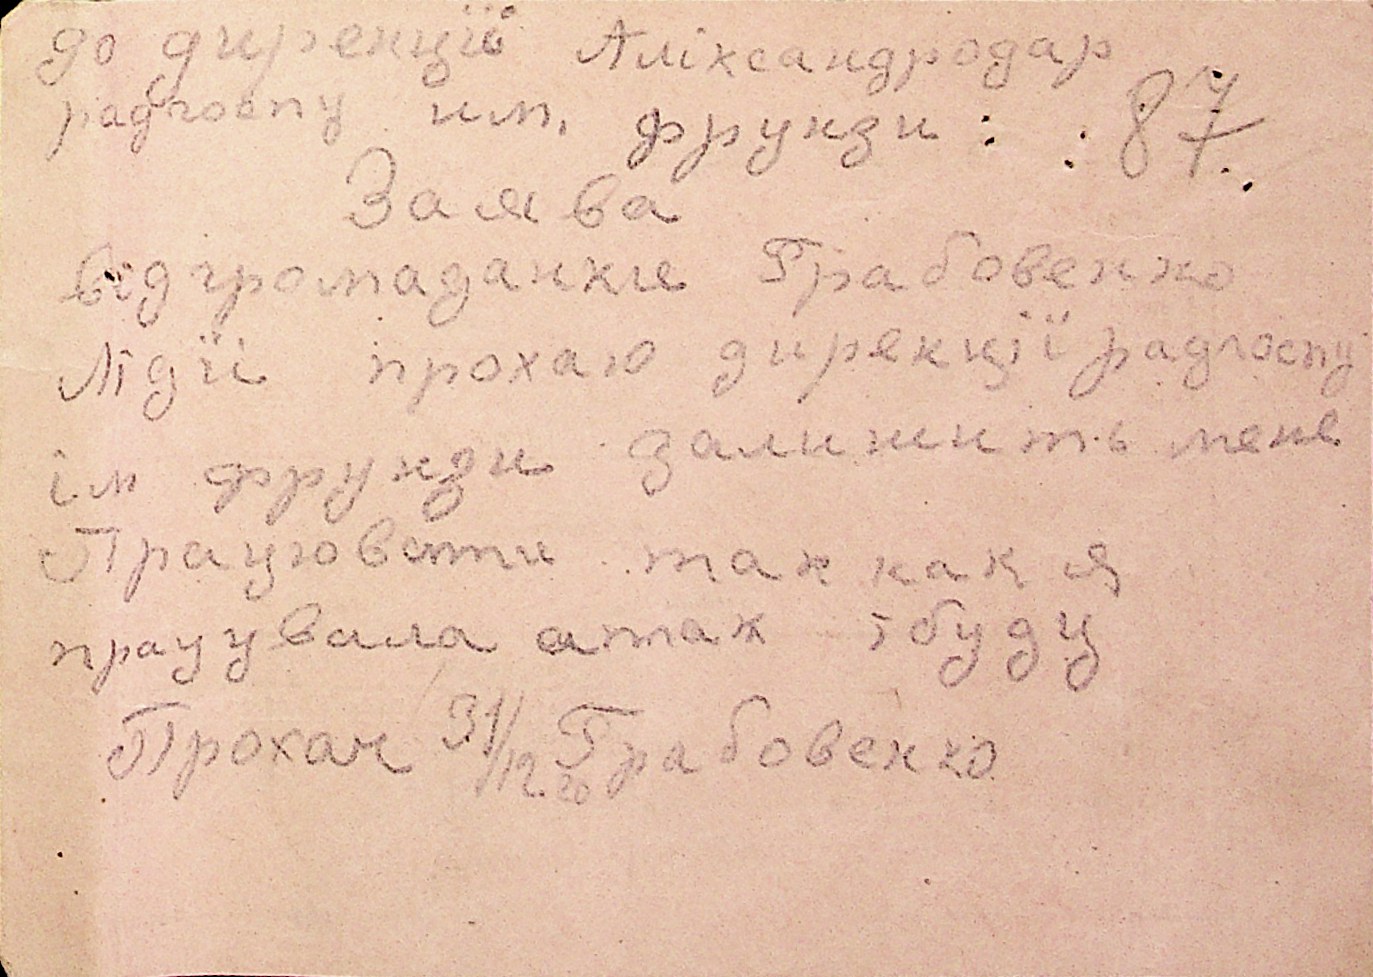 до дирекції Аліхсандродар
радгоспу им. фрунзи : : 87
Заява
від громаданки Грабовенко
Лідїї прохаю дирекції радгоспу
ім фрунзи залишить мене
Працювати так как я
працувала атак і буду
Прохач 31/12.20 Грабовенко